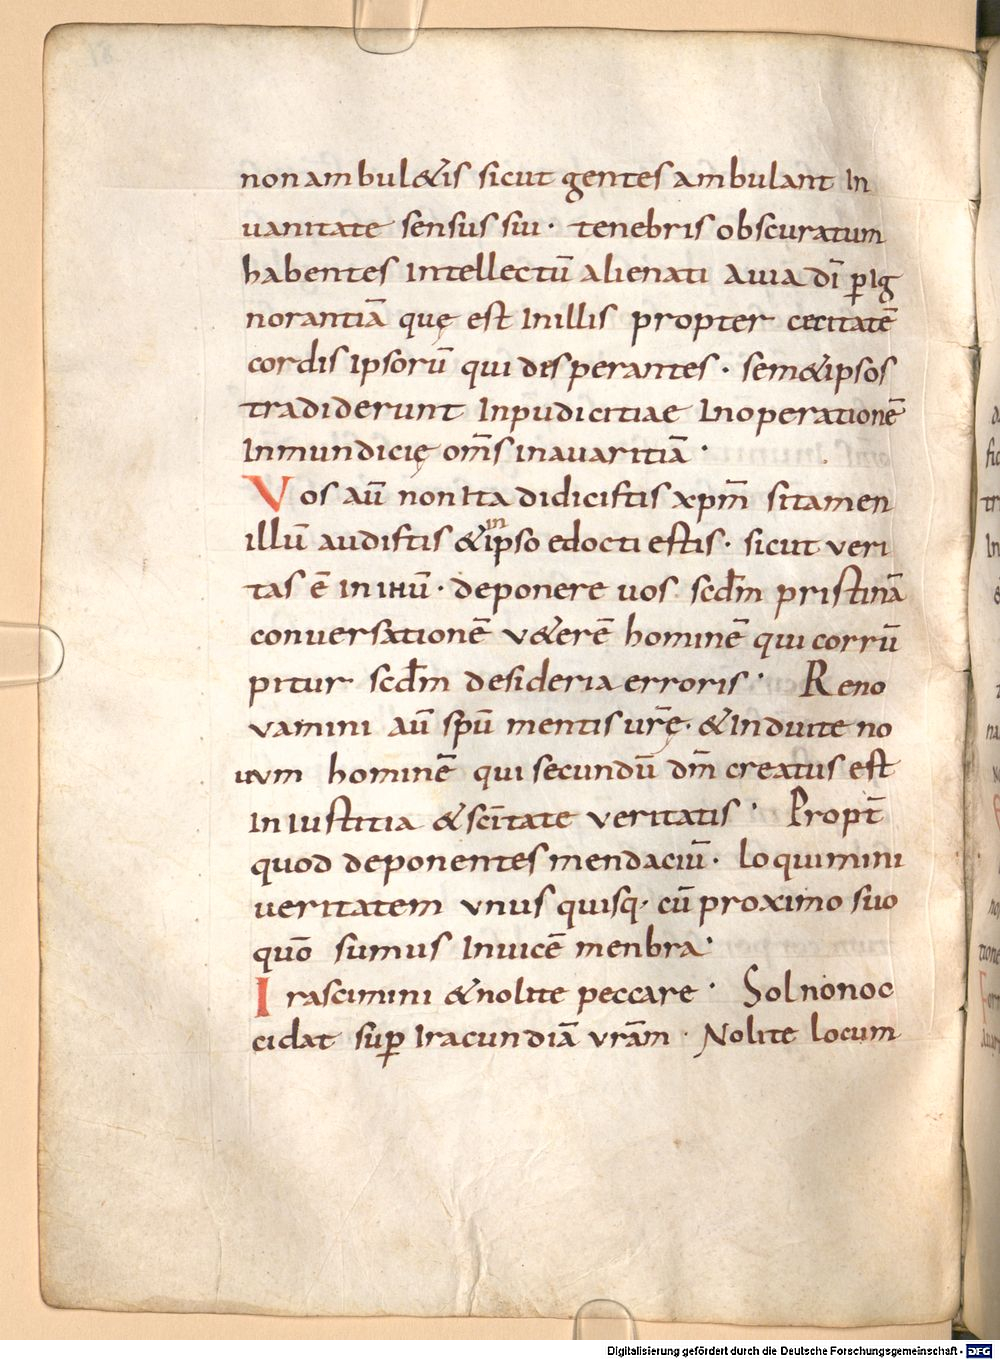 non ambul&is sicut gentes ambulant In
uanitate sensus sui · tenebris obscuratum
habentes Intellectū alienati Auia dī p̱Ig
norantiā quę est Inillis propter cecitatē
cordis Ipsorū qui desperantes · sem&ipsos
tradiderunt Inpudicitiae Inoperationē
Inmundicię om̄s inauaritiā ·
Vos aū non Ita didicistis xpm̄ sitamen
in
illū audistis &ipso edocti estis · sicut veri
tas ē In ihū · deponere uos scd̄m pristinā
conuersationē v&erē hominē qui corrū
pitur scd̄m desideria erroris · Reno
vamini aū spū mentis ur̄ę · &Induite no
uvm hominē qui secundū dm̄ creatus est
In Iustitia &sc̄itate veritatis · Propt̄
quod deponentes mendaciū · loquimini
ueritatem vnus quisq· cū proximo suo
quō sumus Inuicē menbra ·
Irascimini &nolite peccare · Sol nonoc
cidat sup̱ Iracundiā vrām · Nolite locum
Digitalisierung gefördert durch die Deutsche Forschungsgemeinschaft - DFG